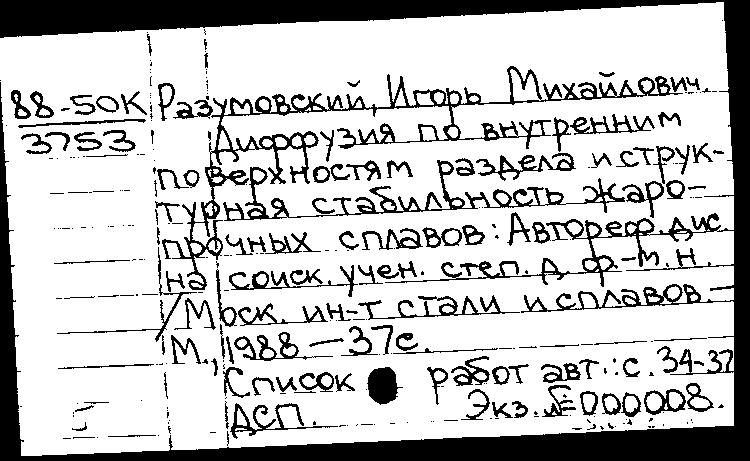 88-50К Разумовский, Игорь Михайлович.
3753 Диффузия по внутренним
поверхностям раздела и струк-
турная стабильность жаро-
прочных сплавов: Автореф. дис.
на соиск. учен. степ. д. ф.-м. н.
/Моск. ин-т стали и сплавов. —
М., 1988. — 37с.
Список работ авт.: с. 34-37
ДСП. Экз. № 000008.